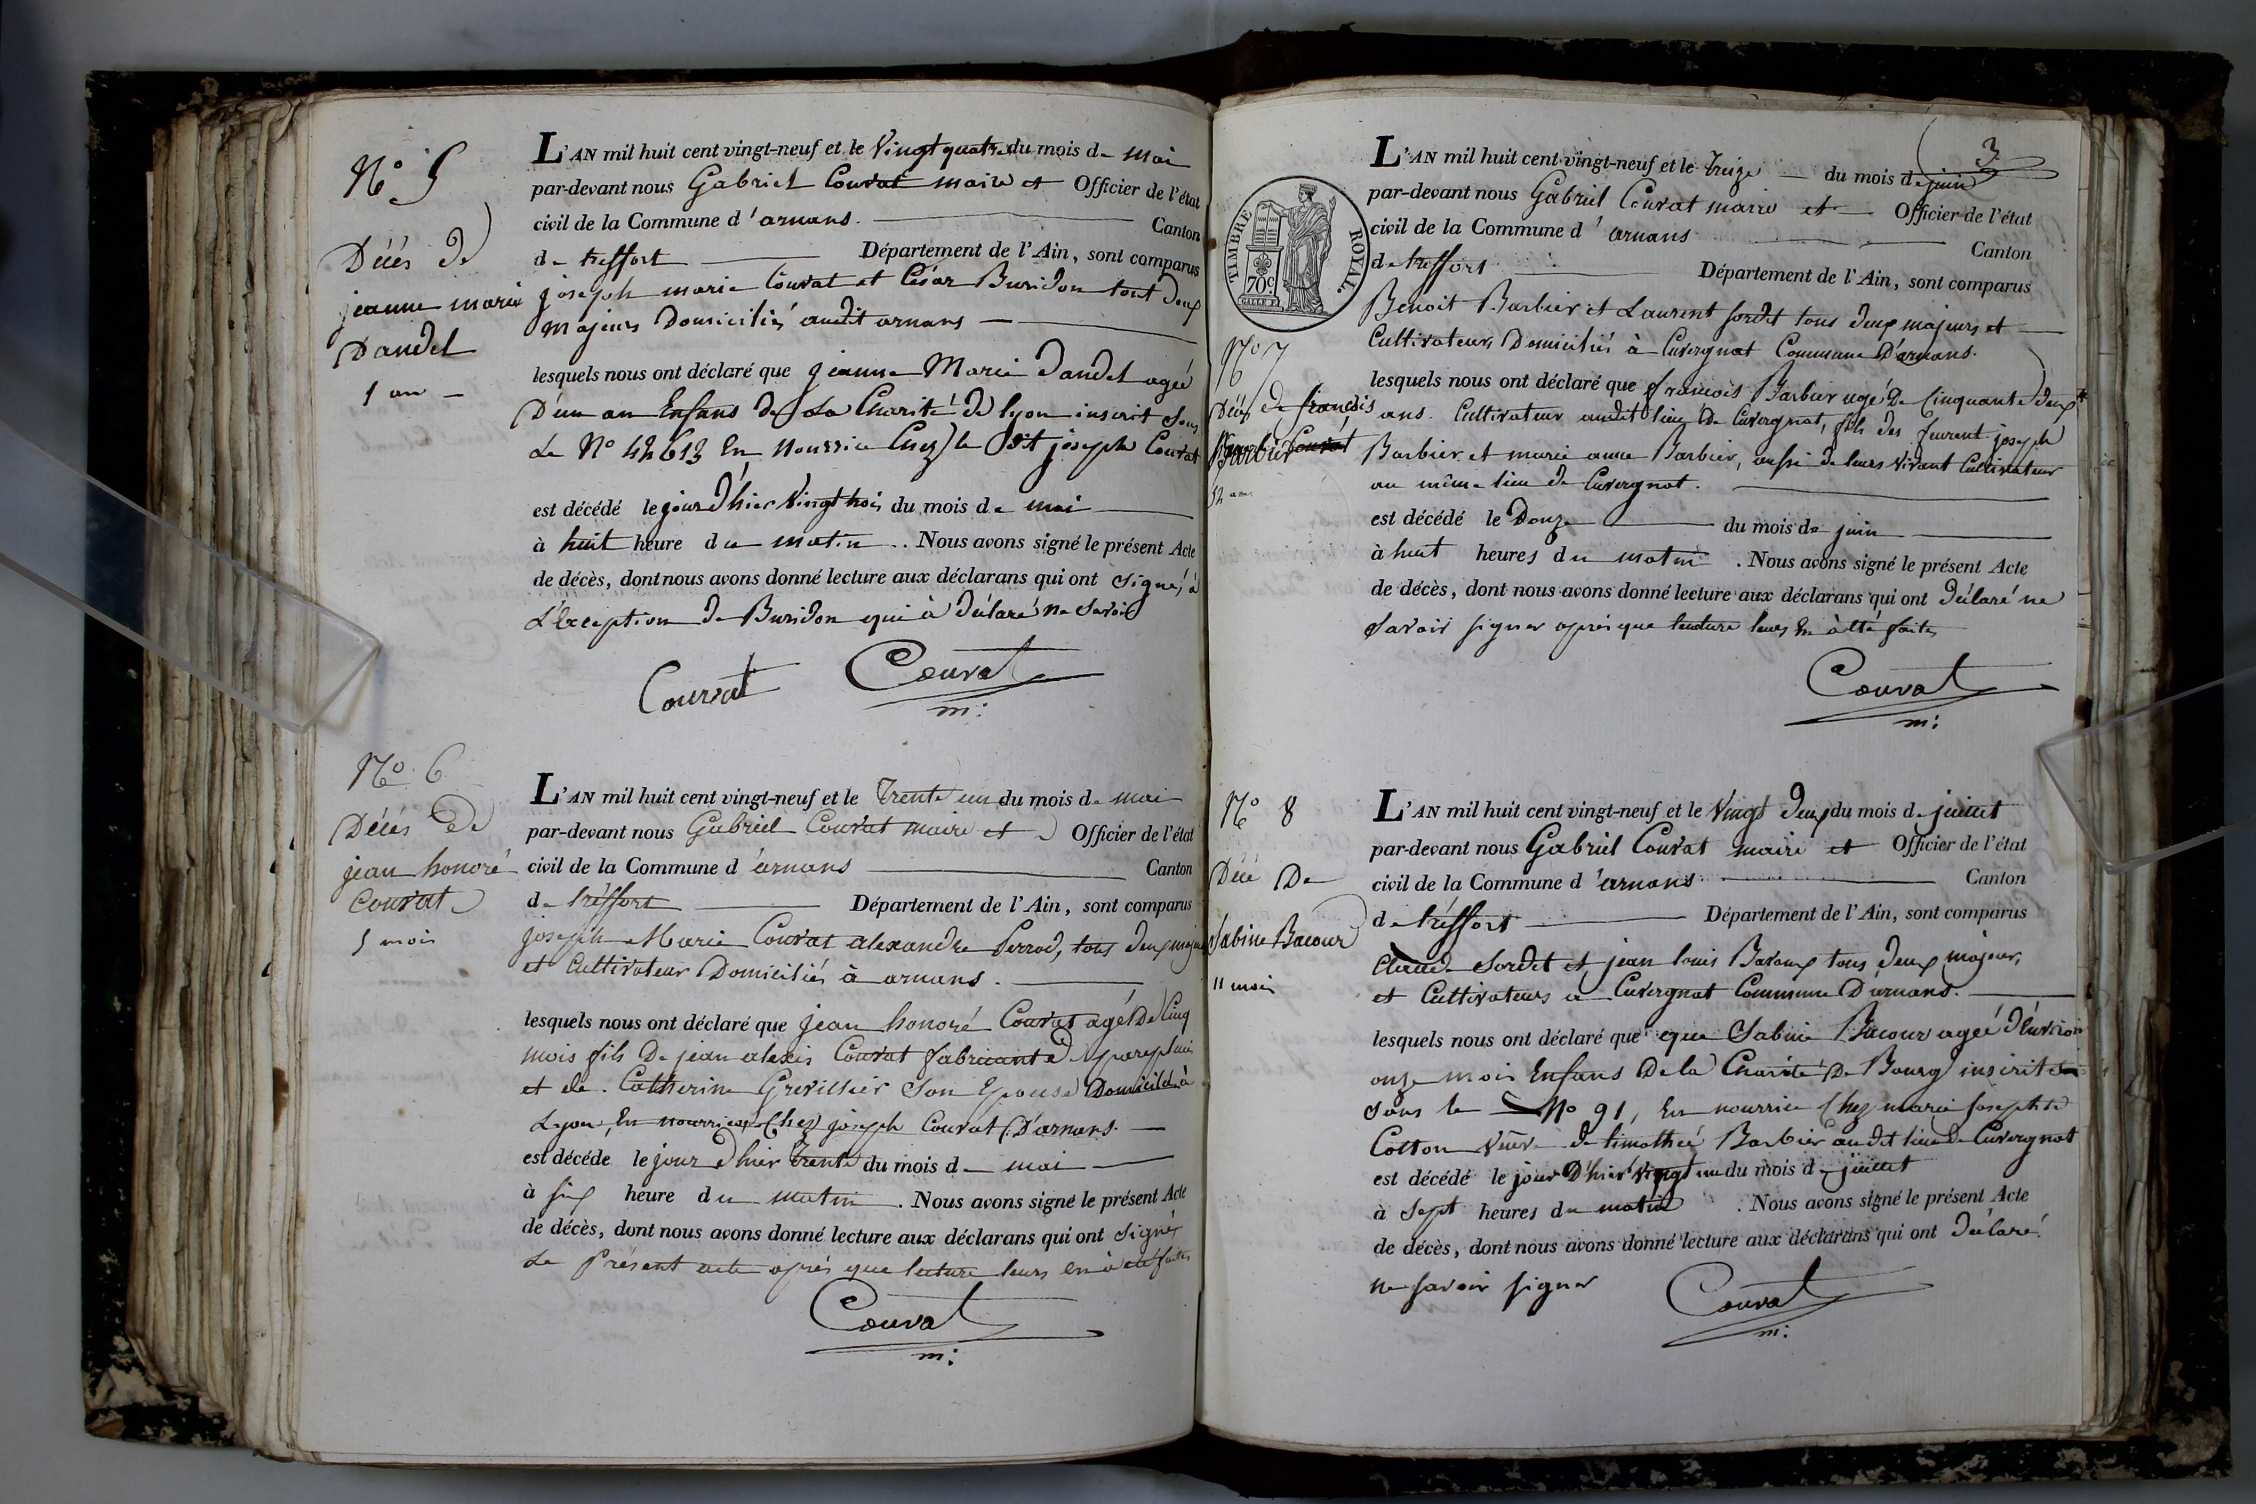 N.o 5
Décés de
jeanne marie
Dandel
1 an
L'AN mil huit cent vingt-neuf et le Vingt quatre du mois de mai
par-devant nous Gabriel Couvat maire et Officier de l'état
civil de la Commune d'arnans. Canton
de treffort Département de l'Ain, sont comparus
joseph marie Couvat et César Buridon tout deux
majeurs Domiciliés audit arnans
lesquels nous ont déclaré que jeanne Marie Dandel agée
D'un an Enfans de La Charité de lyon inscrit Sous
Le N.o 42613 En nourrice Chez le dit joseph Couvat
est décédé le jour d'hier Vingt trois du mois de mai
à huit heure du matin. Nous avons signé le présent Acte
de décès, dont nous avons donné lecture aux déclarans qui ont Signé, à
L'éxception de Buridon qui à déclaré ne Savoir
Couvat Couvat
m:
N.o 6
Décés de
jean honoré
Couvat
5 mois
L'AN mil huit cent vingt-neuf et le Trente un du mois de mai
par-devant nous Gabriel Couvat maire et Officier de l'état
civil de la Commune d'arnans Canton
de tréffort Département de l'Ain, sont comparus
joseph Marie Couvat alexandre Perrod, tous deux majeurs
et Cultivateur Domiciliés à arnans.
lesquels nous ont déclaré que jean honoré Couvat agé De Cinq
mois fils De jean alexis Couvat fabricant de parapluie
et de Catherine Grevillier Son Epouse Domicilié à
Lyon, En nourrice Chez joseph Couvat D'arnans.
est décédé le jour d'hier Trente du mois de mai
à six heure du matin. Nous avons signé le présent Acte
de décès, dont nous avons donné lecture aux déclarans qui ont Signés
Le Présent acte après que lecture leurs en à été faites
Couvat
m:
3
TIMBRE ROYAL.
70c.
N.o 7
Décés de françois
Barbier Couvat
52 ans
L'AN mil huit cent vingt-neuf et le Treize du mois de juin
par-devant nous Gabriel Couvat maire et Officier de l'état
civil de la Commune d'arnans Canton
de treffort Département de l'Ain, sont comparus
Benoit Barbier et Laurent Sordet tous deux majeurs et
Cultivateurs Domiciliés à Cuvergnat Commune D'arnans.
lesquels nous ont déclaré que francois Barbier agé De Cinquante deux
ans. Cultivateur audit lieu de Cuvergnat, fils des feurent joseph
Barbier et marie anne Barbier, aussi de leurs vivant Cultivateur
au même lieu de Cuvergnat.
est décédé le Douze du mois de juin
à huit heures du matin. Nous avons signé le présent Acte
de décès, dont nous avons donné lecture aux déclarans qui ont déclaré ne
Savoir signer après que lecture leurs En à été faites
Couvat
m:
N.o 8
Décé De
Sabine Bacour
11 mois
L'AN mil huit cent vingt-neuf et le Vingt deux du mois de juillet
par-devant nous Gabriel Couvat maire et Officier de l'état
civil de la Commune d'arnans Canton
de tréffort Département de l'Ain, sont comparus
Claude Sordet et jean louis Baroux tous deux majeur,
et Cultivateurs à Cuvergnat Commune D'arnans.
lesquels nous ont déclaré que que Sabine Bacour agée D'environ
onze mois Enfans De la Charité De Bourg inscrit
Sous le N.o 91, En nourrice Chez marie Josephte
Cotton veuve de timothée Barbier audit lieu de Cuvergnat
est décédé le jour D'hier vingt un du mois de juillet
à Sept heures du matin. Nous avons signé le présent Acte
de décès, dont nous avons donné lecture aux déclarans qui ont déclaré
ne Savoir signer
Couvat
m: